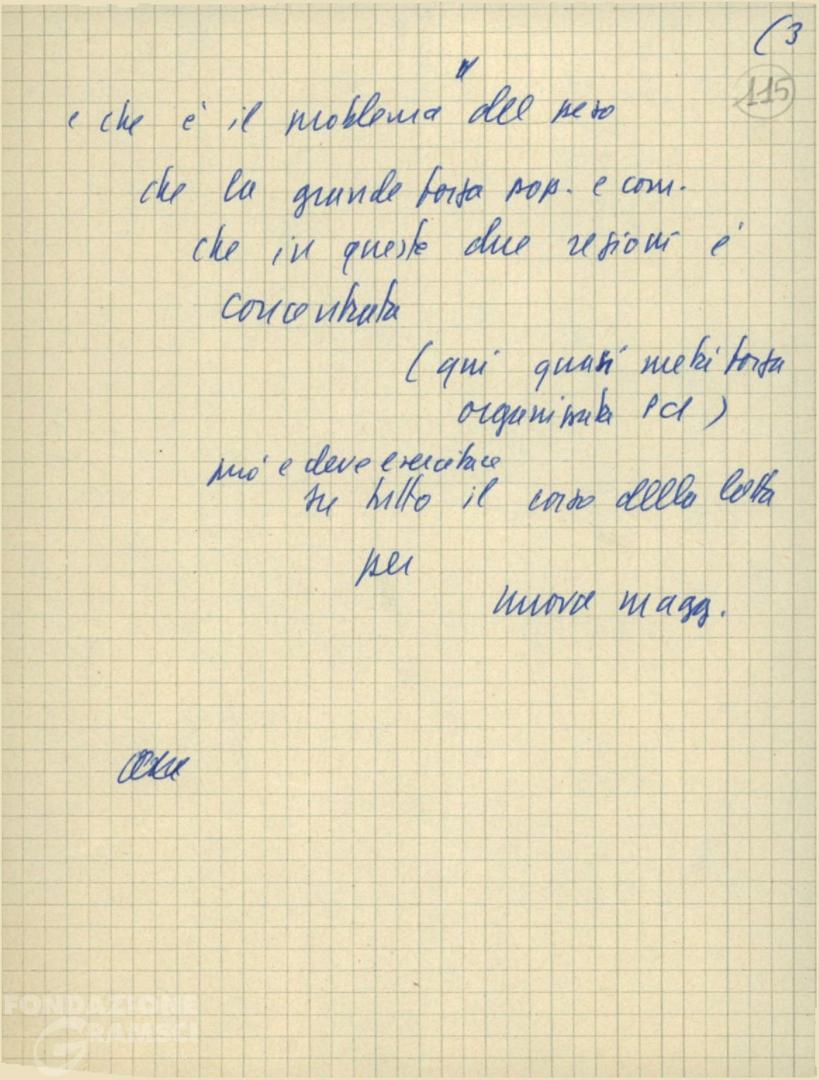 (3
115
e che è il problema del peso
che la grande forza pop. e com.
che in queste due regioni è
concentrata
(qui quasi metà forza
organizzata Pci)
può e deve esercitare
su tutto il corso della lotta
per
nuova magg.
FONDAZIONE
GRAMSCI